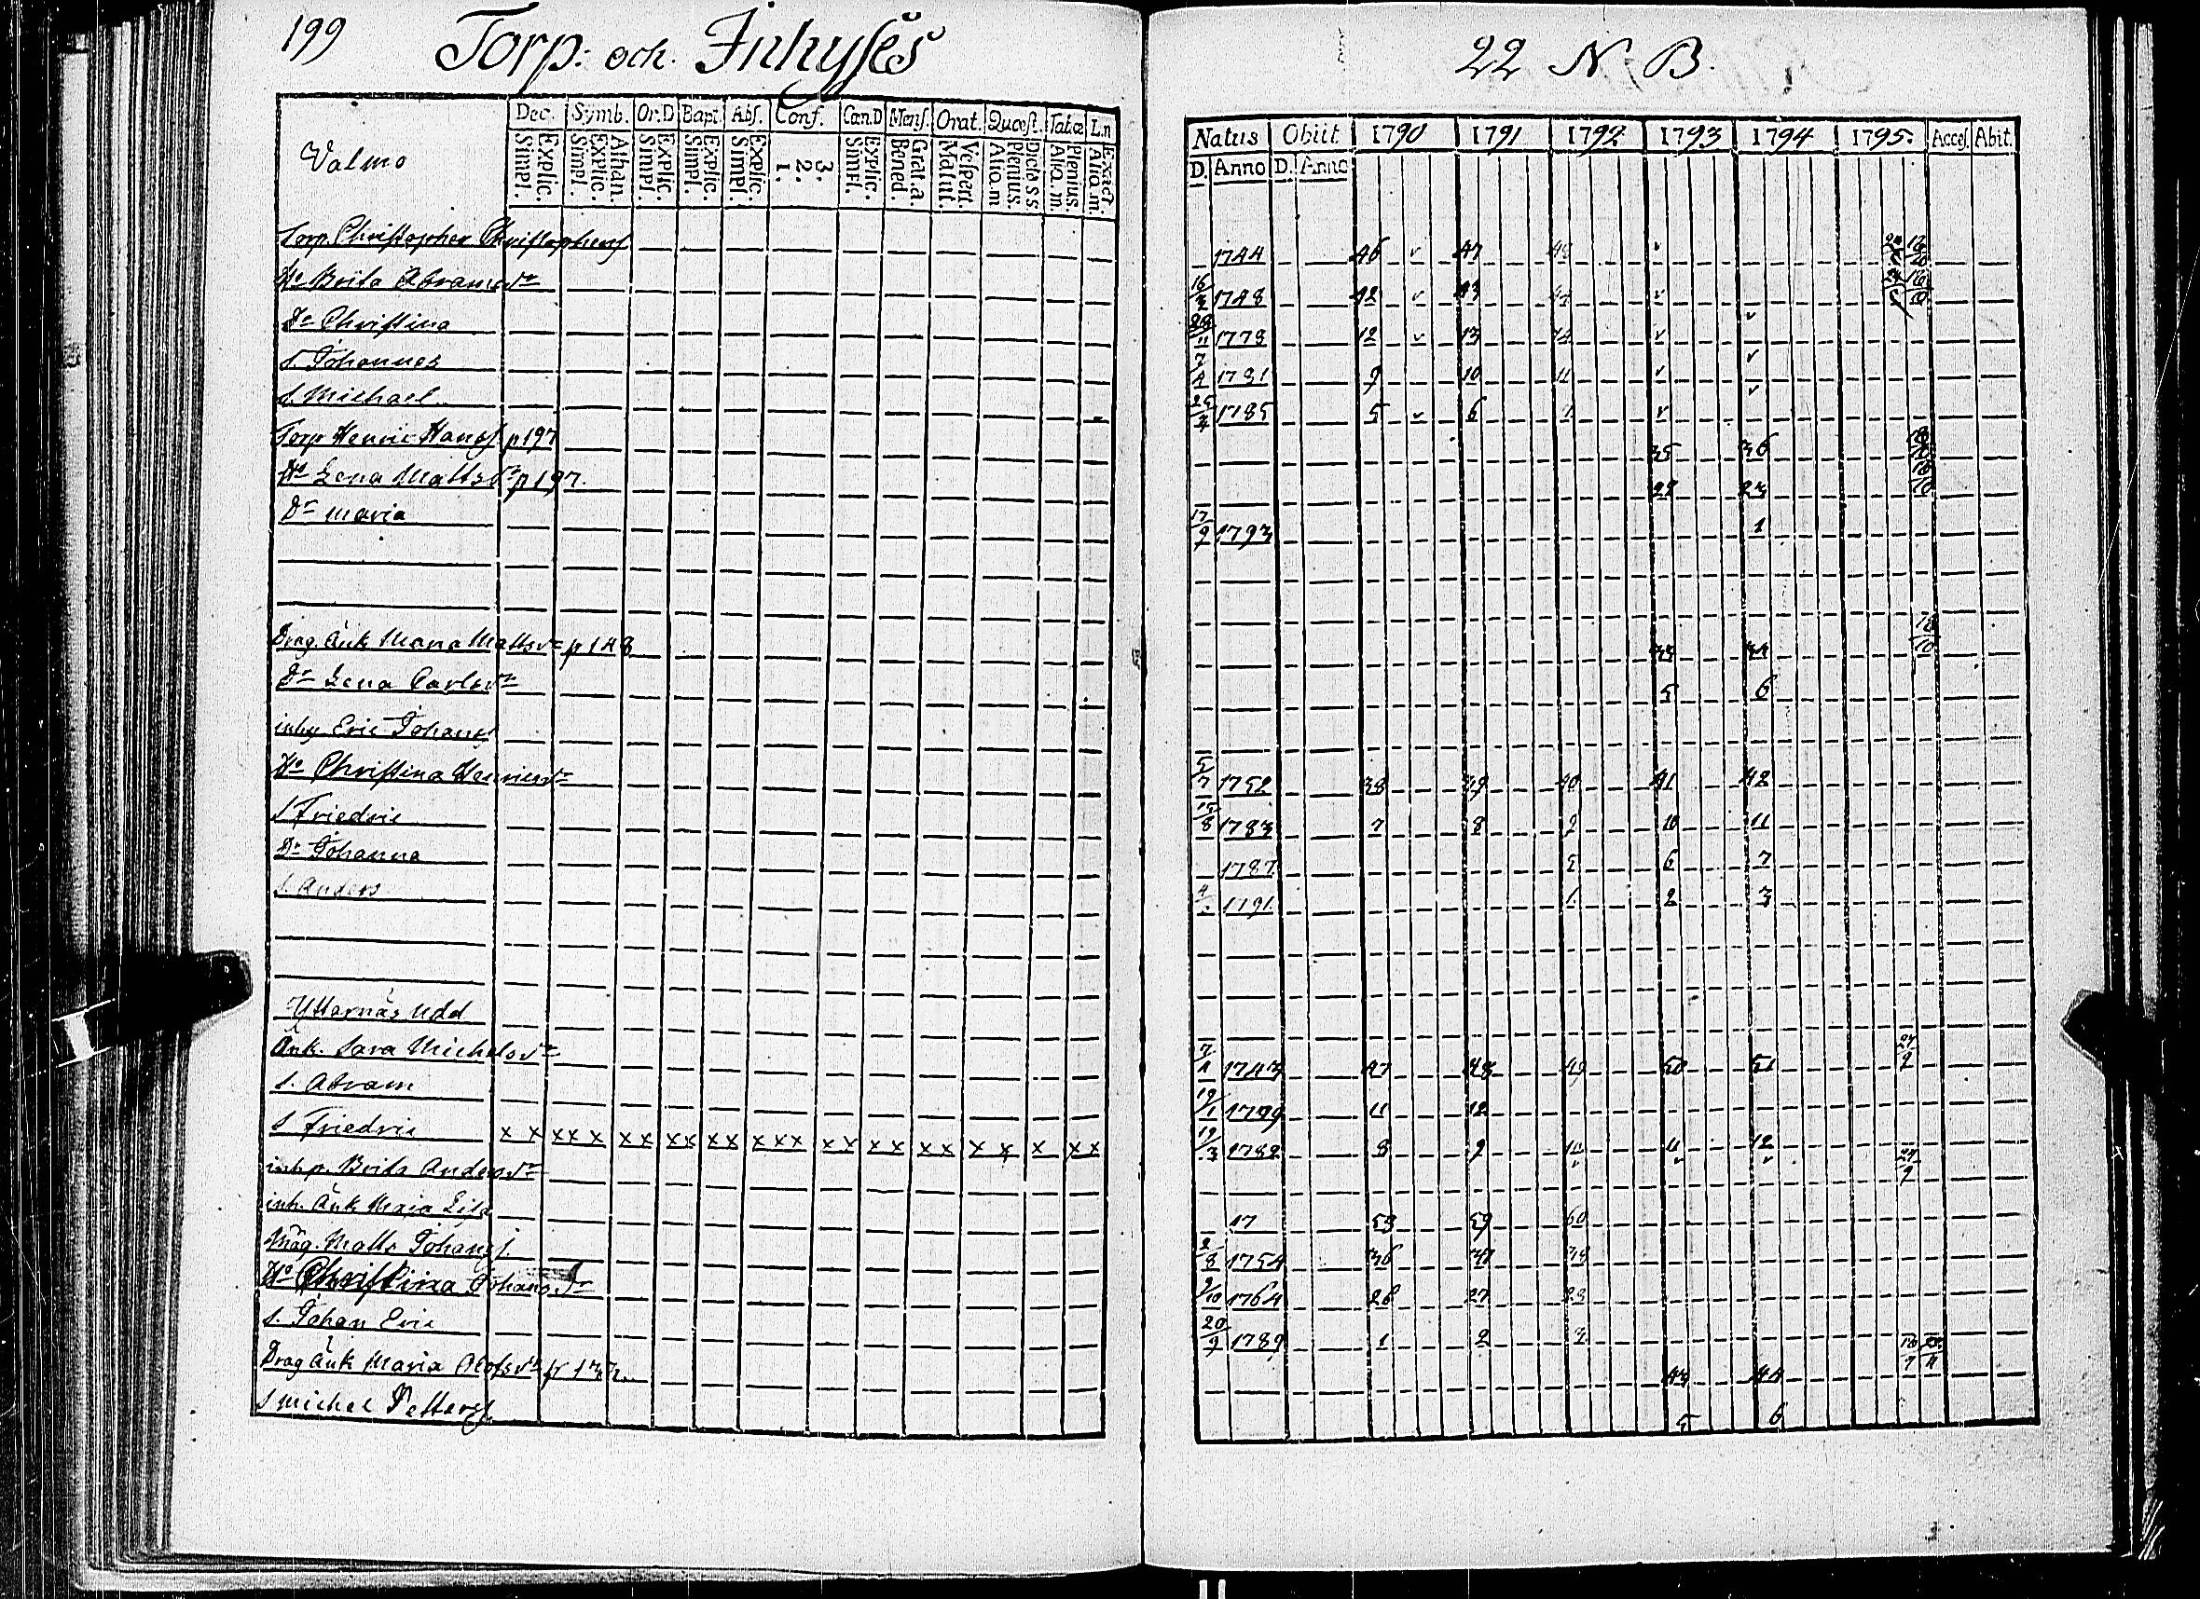 199 Torp: och. Inhyses
22 N B.
Dec. Symb. Or.D Bapt. Abs. Conf. Cœn.D Mens. Orat. Quæst. Tabæ L.n
Valmo
Explic. Simpl. Athan. Explic. Simpl. Explic. Simpl. Explic. Simpl. Explic. Simpl. 3. 2. 1. Explic. Simpl. Grat.a. Bened. Vespert. Matut. Dictō s s. Plenius. Aliq.m Plenius. Aliq.m. Exact. Aliq.m.
Natus Obiit 1790 1791 1792 1793 1794 1795. Acces. Abit.
D. Anno D. Anno
Torp. Christopher Christophers 1744 46 v 47 v
Hu Brita Abramsdr 16/3 1748 42 v 43 v
Dr Christina 1778 12 v 13 v v
S. Johannes 7/4 1781 9 10 11 v v
S. Michael 25/4 1785 5 v 6 v v
Torp Henric Hanss. p 197 35 36
Hu Lena Mattsdr p 197. 22 23
Dr Maria 17/9 1793 1
Drag. Änk Maria Mattsdr p 148 33 34
Dr Lena Carlsdr 5 6
inhy Eric Johanss
Hu Christina Henricsdr 5/7 1752 38 39 40 41 42
S Friedric 15/8 1783 7 8 9 10 11
Dr Johanna 1787. 5 6 7
S. Anders 1791. 1 2 3
Ytternäs Udd
Änk. Sara Michelsdr 1743 47 48 49 50 51
S. Abram 19/1 1779 11 12
S Friedric x x x x x x x x x x x x x x x x x x x x x x x x x x 19/3 1782 8 9 10 11 12
inh.p. Brita Andersdr v v v
inh. Änk Maria Lisa 17 58 59 60
Måg. Matts Johanss. 2/8 1754 36 37 38
Hu Christina Johansdr 9/10 1764 26 27 28
S. Johan Eric 20/9 1789 1 2 3
Drag Änk Maria Olofsdr p 43 44
S Michel Petterss 5 6